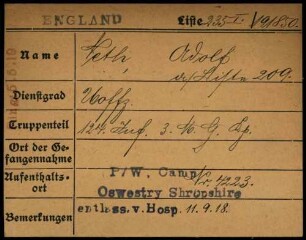 ENGLAND Liste 225 I. V9/850.
Name Feth, Adolf
a/Liste 209.
Dienstgrad Uoffz.
Truppenteil 124. Inf. 3. M. G. Kp.
Ort der Gefangennahme
Aufenthaltsort P/W. Camp Nr. 4223.
Oswestry Shropshire
Bemerkungen entlass. v. Hosp. 11.9.18.